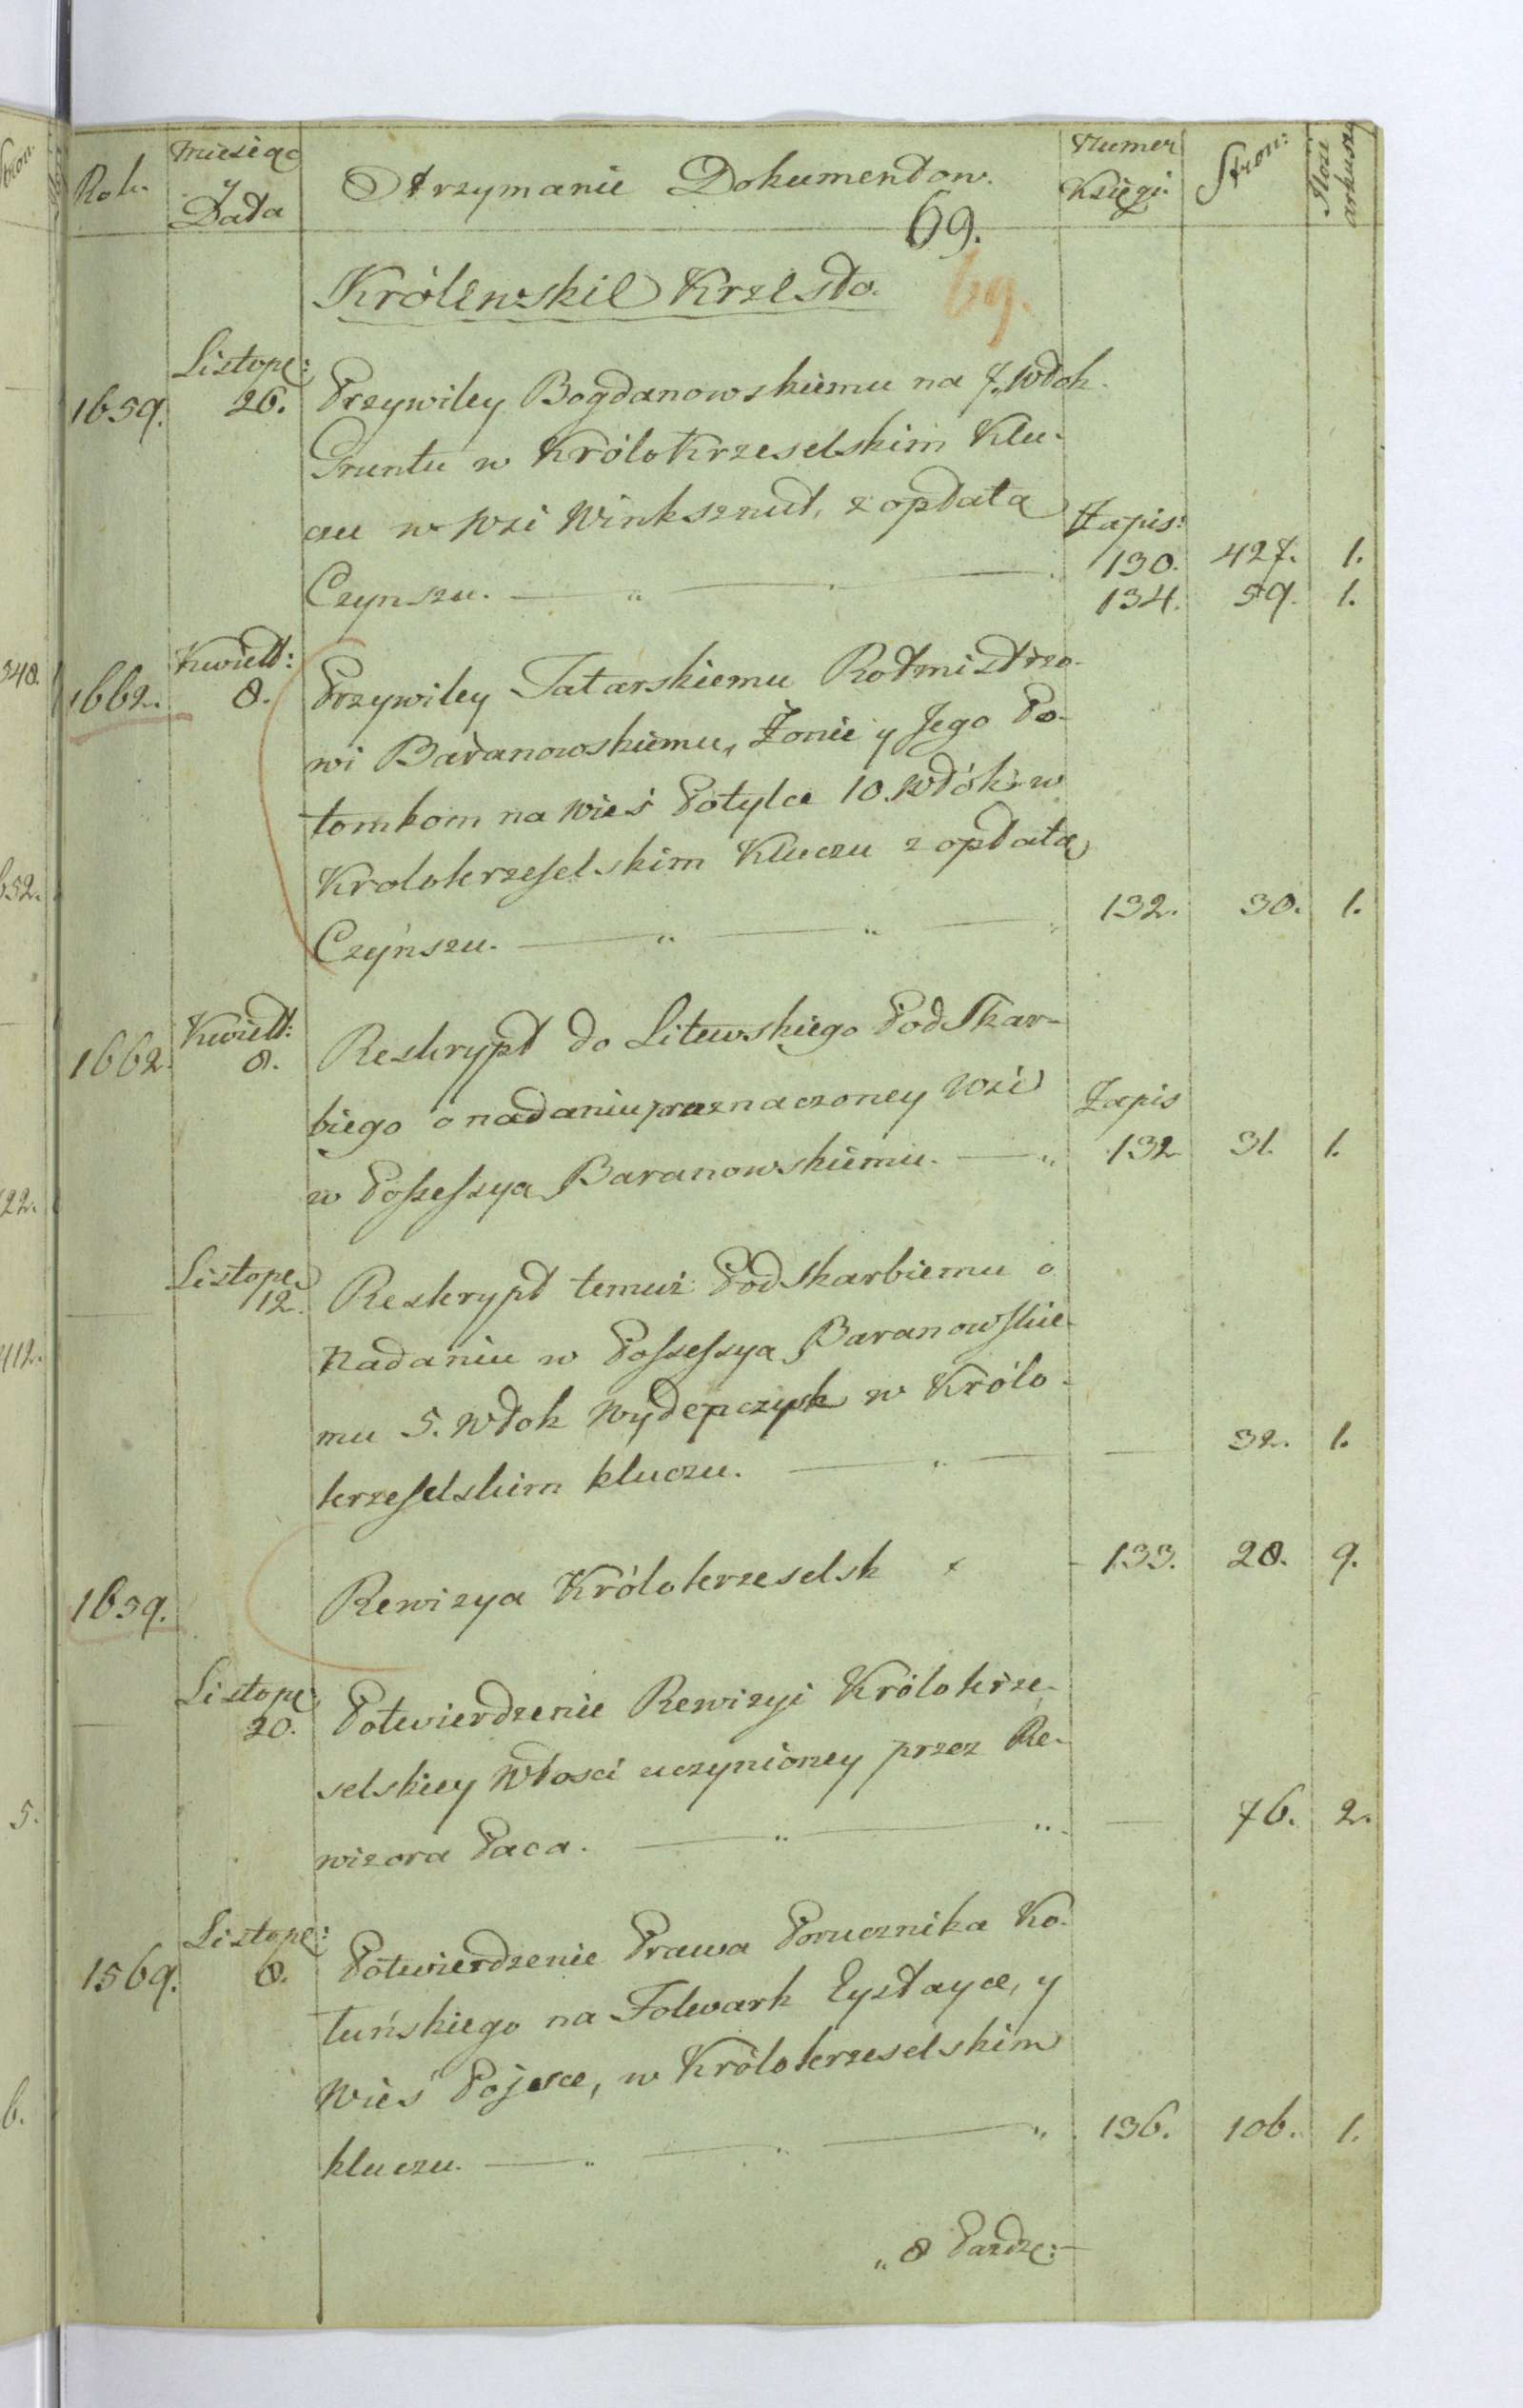 Rok. Miesiąc y Data Otrzymanie Dokumentow. Numer Księgi. Stron: Ilość arkuszy
69.
69.
Królewskie Krzesło.
1659. Listope: 26. Przywiley Bogdanowskiemu na 7. włok
Gruntu w Królokrzeselskim Klu-
czu w Wsi Winksznuł, z opłatą Zapis:
Czynszu. 130. 427. 1.
134. 59. 1.
1662. Kwiett: 8. Przywiley Tatarskiemu Rotmistrzo-
wi Baranowskiemu, Żonie y Jego Po-
tomkom na wieś Potylce 10. włók w
Krolokrzeselskim Kluczu z opłatą
Czyńszu. 132. 30. 1.
1662. Kwiett: 8. Reskrypt do Litewskiego Podskar-
biego o nadaniu przeznaczoney wsi Zapis
w Possessyą Baranowskiemu. 132 31. 1.
Listope. 12. Reskrypt temuż Podskarbiemu o
Nadaniu w Possessyą Baranowskie-
mu 5. włok Wydepczysk w Królo-
krzeselskim kluczu. 32. 1.
1659. Rewizya Królokrzeselsk 133. 28. 9.
Listope: 20. Potwierdzenie Rewizyi Królokrze-
selskiey Włosci uczynioney przez Re-
wizora Paca. 76. 2.
1569. Listope: 8. Potwierdzenie Prawa Porucznika Ko-
tuńskiego na Folwark Eystayce, y
Wieś Pojesce, w Królokrzeselskim
kluczu. 136. 106. 1.
„ 8 Pazdz: